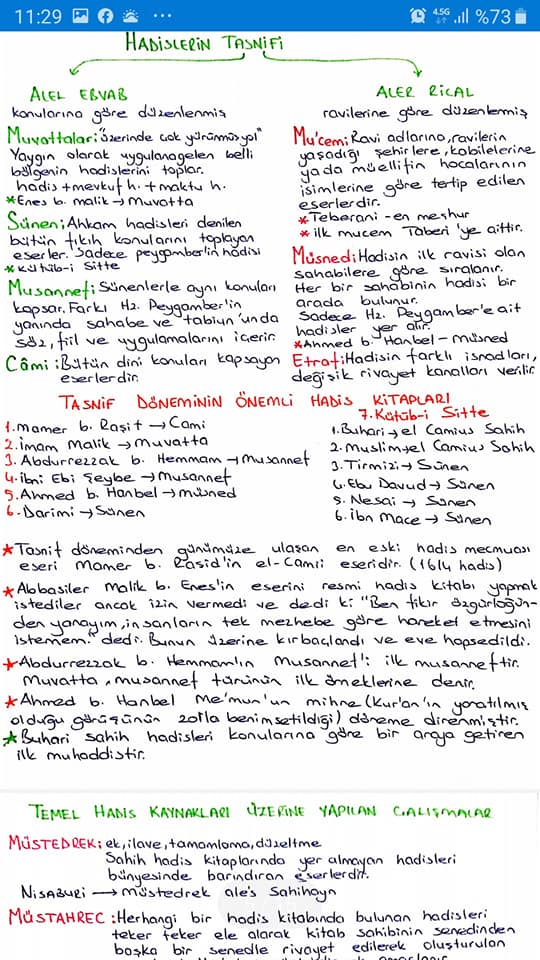 11:29
4.5G
%73
HADİSLERİN TASNİFİ
ALEL EBVAB
konularına göre düzenlenmiş
Muvattalar: "Üzerinde çok yürünmüş yol"
Yaygın olarak uygulanagelen belli
bölgenin hadislerini toplar.
hadis + mevkuf h. + maktu h.
*Enes b. malik → Muvatta
Sünen: Ahkam hadisleri denilen
bütün fıkıh konularını toplayan
eserler. Sadece peygamber'in hadisi
*Kütüb-i Sitte
Musannef: Sünenlerle aynı konuları
kapsar. Farkı Hz. Peygamber'in
yanında sahabe ve tabiyun'unda
söz, fiil ve uygulamalarını içerir.
Câmi: Bütün dini konuları kapsayan
eserlerdir.
ALER RİCAL
ravilerine göre düzenlenmiş
Mu'cem: Ravi adlarına, ravilerin
yaşadığı şehirlere, kabilelerine
yada müellifin hocalarının
isimlerine göre tertip edilen
eserlerdir.
*Teberani - en meşhur
*ilk mucem Taberi'ye aittir.
Müsned: Hadisin ilk ravisi olan
sahabilere göre sıralanır.
Her bir sahabinin hadisi bir
arada bulunur.
Sadece Hz. Peygamber'e ait
hadisler yer alır.
*Ahmed b. Hanbel - müsned
Etraf: Hadisin farklı isnadları,
değişik rivayet kanalları verilir.
TASNİF DÖNEMİNİN ÖNEMLİ HADİS KİTAPLARI
1. mamer b. Raşit → Cami
2. İmam Malik → Muvatta
3. Abdurrezzak b. Hemmam → Musannef
4. İbni Ebi Şeybe → Musannef
5. Ahmed b. Hanbel → müsned
6. Darimi → Sünen
7. Kütüb-i Sitte
1. Buhari → el Camius Sahih
2. Muslim → el Camius Sahih
3. Tirmizi → Sünen
4. Ebu Davud → Sünen
5. Nesai → Sünen
6. İbn Mace → Sünen
*Tasnif döneminden günümüze ulaşan en eski hadis mecmuası
eseri Mamer b. Raşid'in el-Camii eseridir. (1614 hadis)
*Abbasiler Malik b. Enes'in eserini resmi hadis kitabı yapmak
istediler ancak izin vermedi ve dedi ki: "Ben fikir özgürlüğün-
den yanayım, insanların tek mezhebe göre hareket etmesini
istemem." dedi. Bunun üzerine kırbaçlandı ve eve hapsedildi.
*Abdurrezzak b. Hemmam'ın Musannef'i: ilk musanneftir.
Muvatta, musannef türünün ilk örneklerine denir.
*Ahmed b. Hanbel Me'mun'un mihne (Kur'an'ın yaratılmış
olduğu görüşünün zorla benimsetildiği) döneme direnmiştir.
*Buhari sahih hadisleri konularına göre bir araya getiren
ilk muhaddistir.
TEMEL HADİS KAYNAKLARI ÜZERİNE YAPILAN ÇALIŞMALAR
MÜSTEDREK: ek, ilave, tamamlama, düzeltme
Sahih hadis kitaplarında yer almayan hadisleri
bünyesinde barındıran eserlerdir.
NİSABURİ → müstedrek ale's Sahihayn
MÜSTAHREC: Herhangi bir hadis kitabında bulunan hadisleri
teker teker ele alarak kitab sahibinin senedinden
başka bir senedle rivayet edilerek oluşturulan